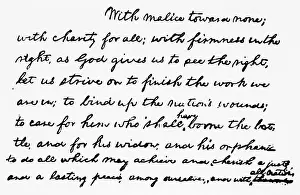 With malice toward none;
with charity for all; with firmness in the
right, as God gives us to see the right,
let us strive on to finish the work we
are in; to bind up the nation's wounds;
to care for him who shall have borne the bat-
tle, and for his widow, and his orphan—
to do all which may achieve and cherish a just
and a lasting peace, among ourselves, and with all nations.